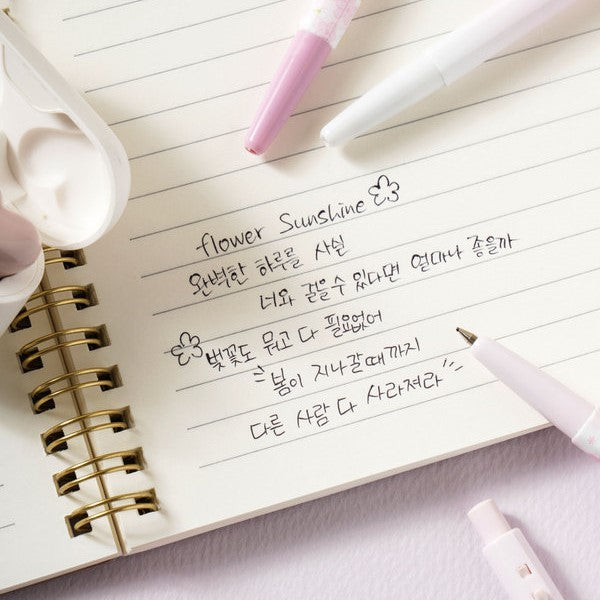 flower Sunshine
완벽한 하루를 사실
너와 걸을수 있다면 얼마나 좋을까
벚꽃도 뭐고 다 필요없어
봄이 지나갈때까지
다른 사람 다 사라져라